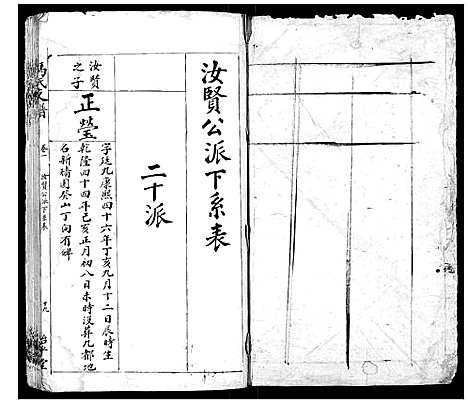 汝賢公派下系表
二十派
汝賢
之子
正瑩
字廷九康熙四十六年丁亥九月十二日辰時生
乾隆四十四年己亥正月初八日未時沒葬九都地
名新墻園癸山丁向有碑
卷一
汝賢公派下系表